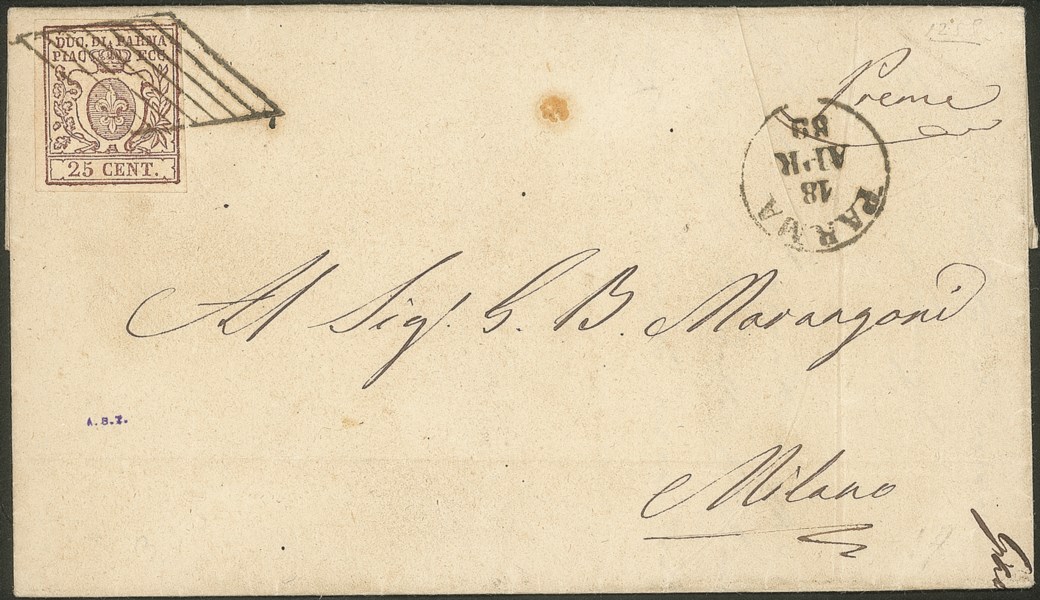 DUC. DI PARMA
PIAC ECC.
25 CENT.
Preme
PARMA
18
APR
Al Sig.r G. B. Marangoni
A.B.Z.
Milano